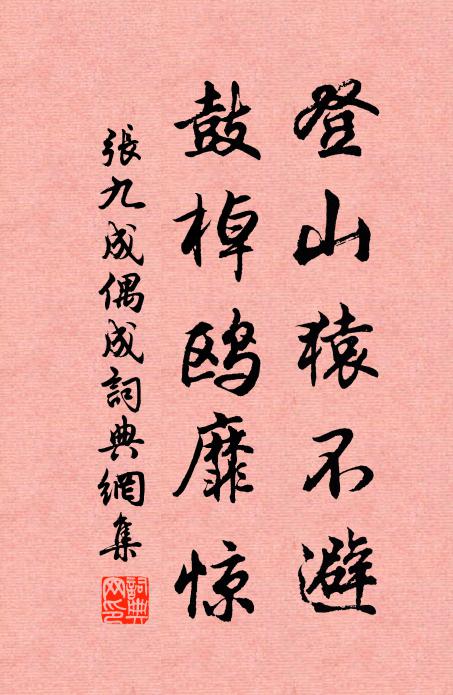 登山猿不避
鼓棹鸥靡惊
張九成偶成詞典網集
詞典網